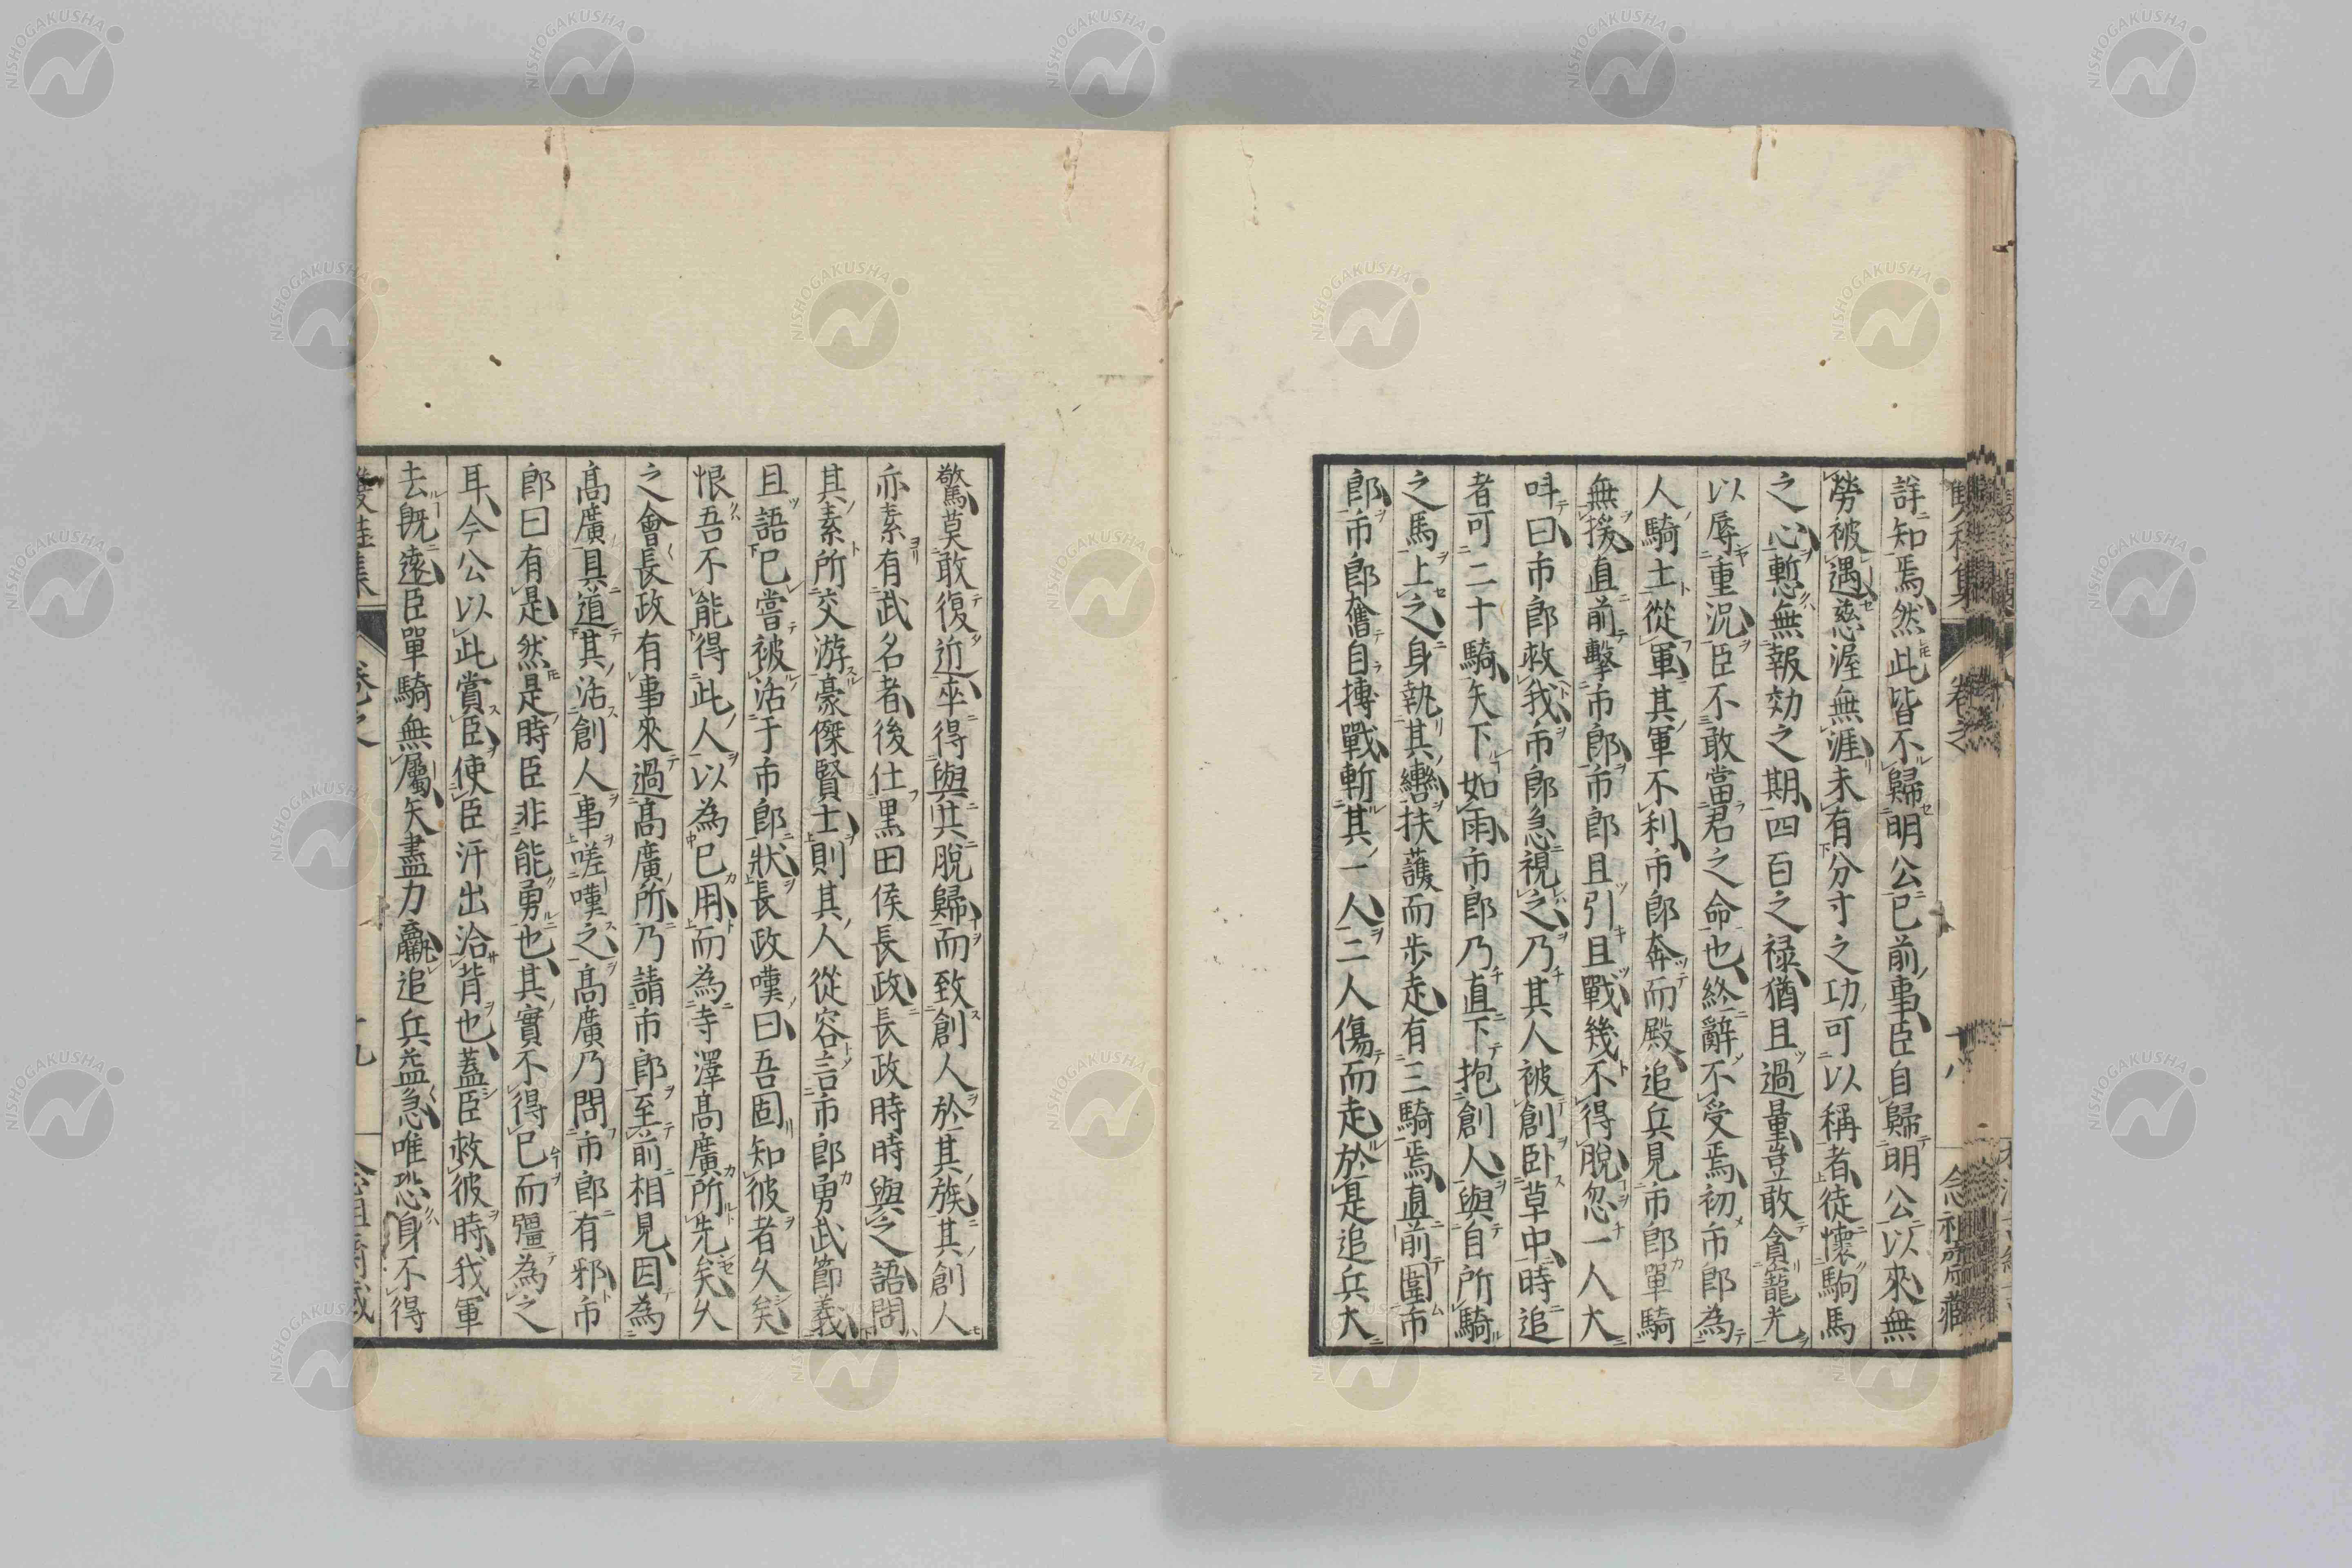 詳知焉然此皆不歸明公已前事臣自歸明公以來無
勞被遇慈渥無涯未有分寸之功可以稱者徒懷駒馬
之心慙無報効之期四百之禄猶且過量豈敢貪寵光
以辱重況臣不敢當君之命也終辭不受焉初市郎為
人騎士從軍其軍不利市郎奔而殿追兵見市郎單騎
無援直前擊市郎市郎且引且戰幾不得脫忽一人大
呌曰市郎救我市郎急視之乃其人被創卧草中時追
者可二十騎矢下如雨市郎乃直下抱創人與自所騎
之馬上之身執其轡扶護而步走有三騎焉直前圍市
郎市郎奮自搏戰斬其一人二人傷而走於是追兵大
驚莫敢復近卒得與其脫歸而致創人於其族其創人
亦素有武名者後仕黒田侯長政長政時時與之語問
其素所交游豪傑賢士則其人從容言市郎勇武節義
且語已嘗被活于市郎狀長政嘆曰吾固知彼者久矣
恨吾不能得此人以為已用而為寺澤高廣所先矣久
之會長政有事來過高廣所乃請市郎至前相見因為
高廣具道其活創人事嗟嘆之高廣乃問市郎有邪市
郎曰有是然是時臣非能勇也其實不得已而彊為之
耳今公以此賞臣使臣汗出洽背也蓋臣救彼時我軍
去既遠臣單騎無屬矢盡力羸追兵益急唯恐身不得
卷之
十九
NISHOGAKUSHA